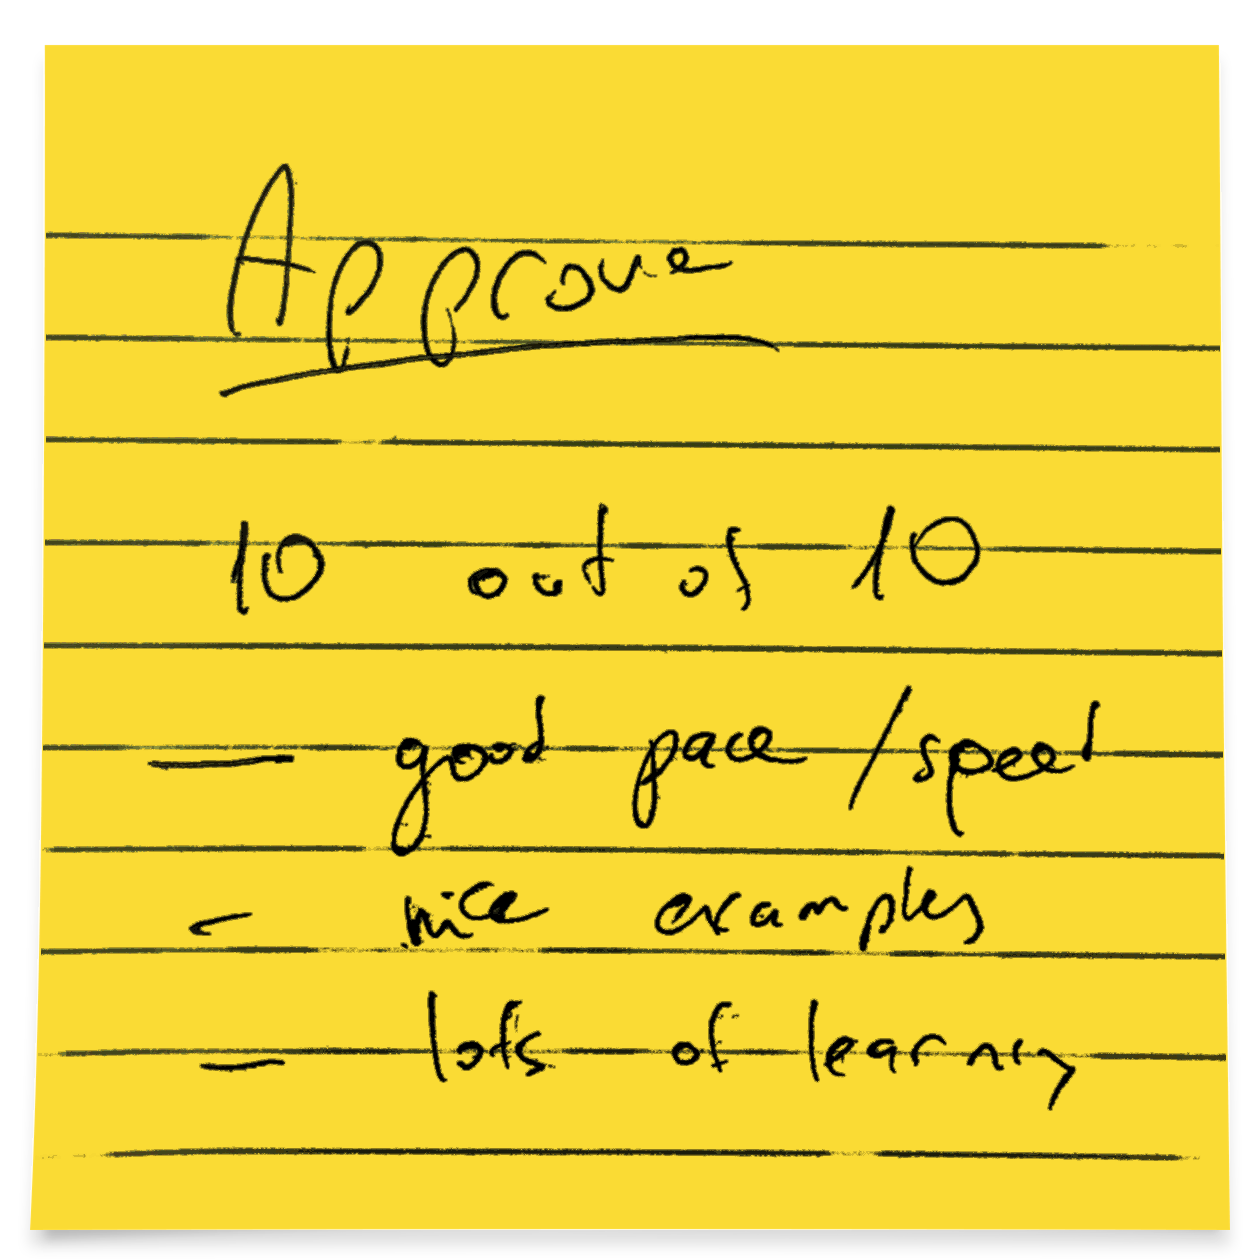 Approve
10 out of 10
— good pace / speed
- nice examples
- lots of learning